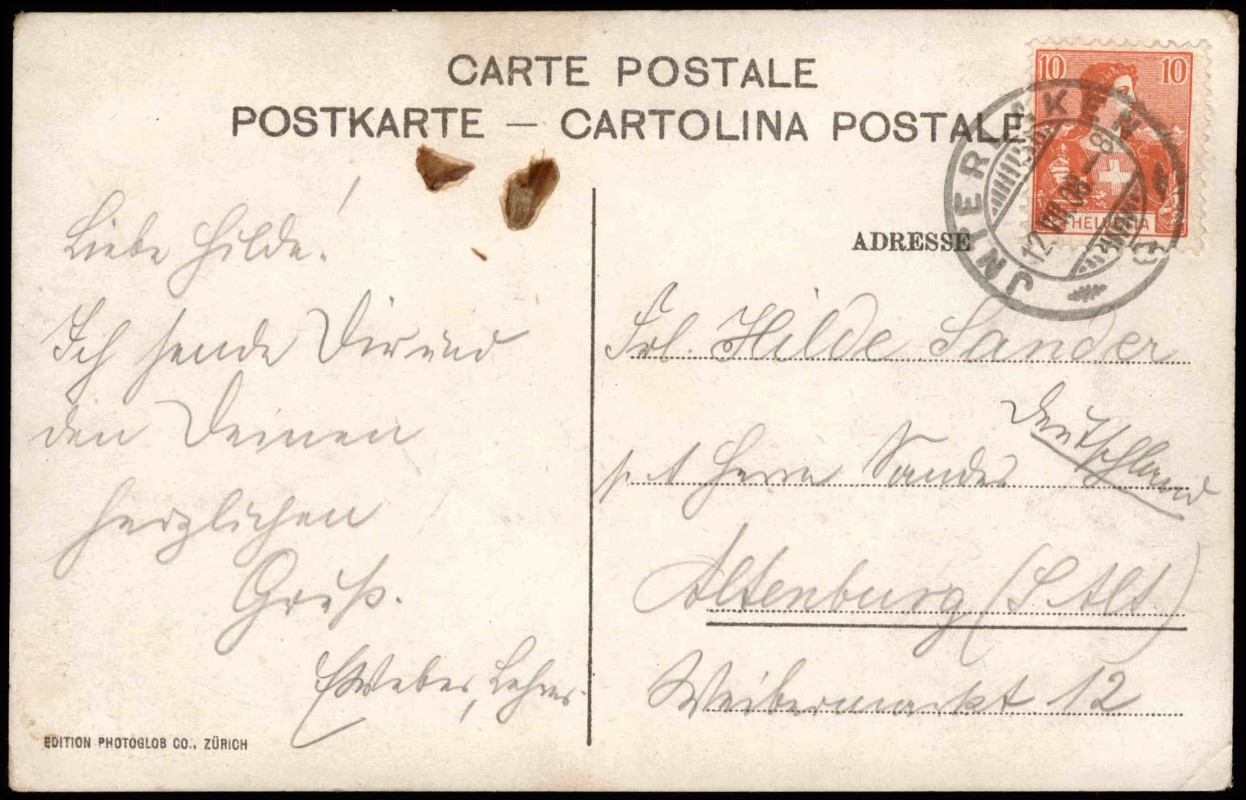 CARTE POSTALE
POSTKARTE — CARTOLINA POSTALE
10 10
HELVETIA
JNTERLAKEN
12.VII.08 – 8
ADRESSE
Liebe Hilde!
Ich sende Dir und
den Deinen
herzlichen
Gruß.
EWeber, Lehrer
EDITION PHOTOGLOB CO., ZÜRICH
Frl. Hilde Sander
Deutschland
Herrn Sander
Altenburg (S. Alt.)
Weibermarkt 12